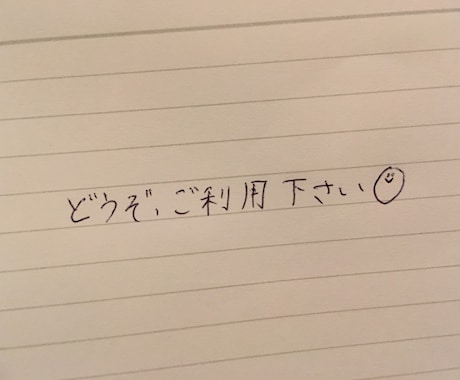 どうぞ、ご利用下さい☺